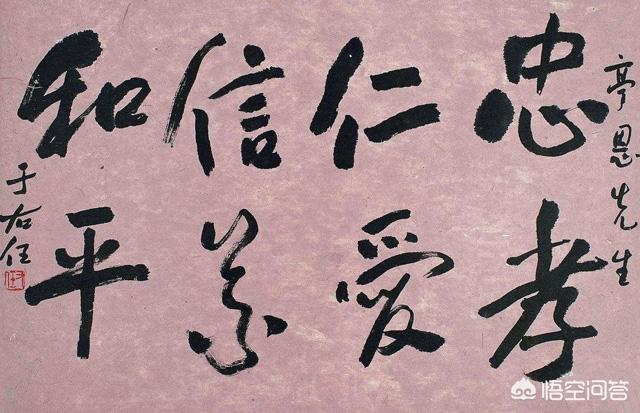 亭恩先生
忠孝
仁愛
信義
和平
于右任
悟空问答